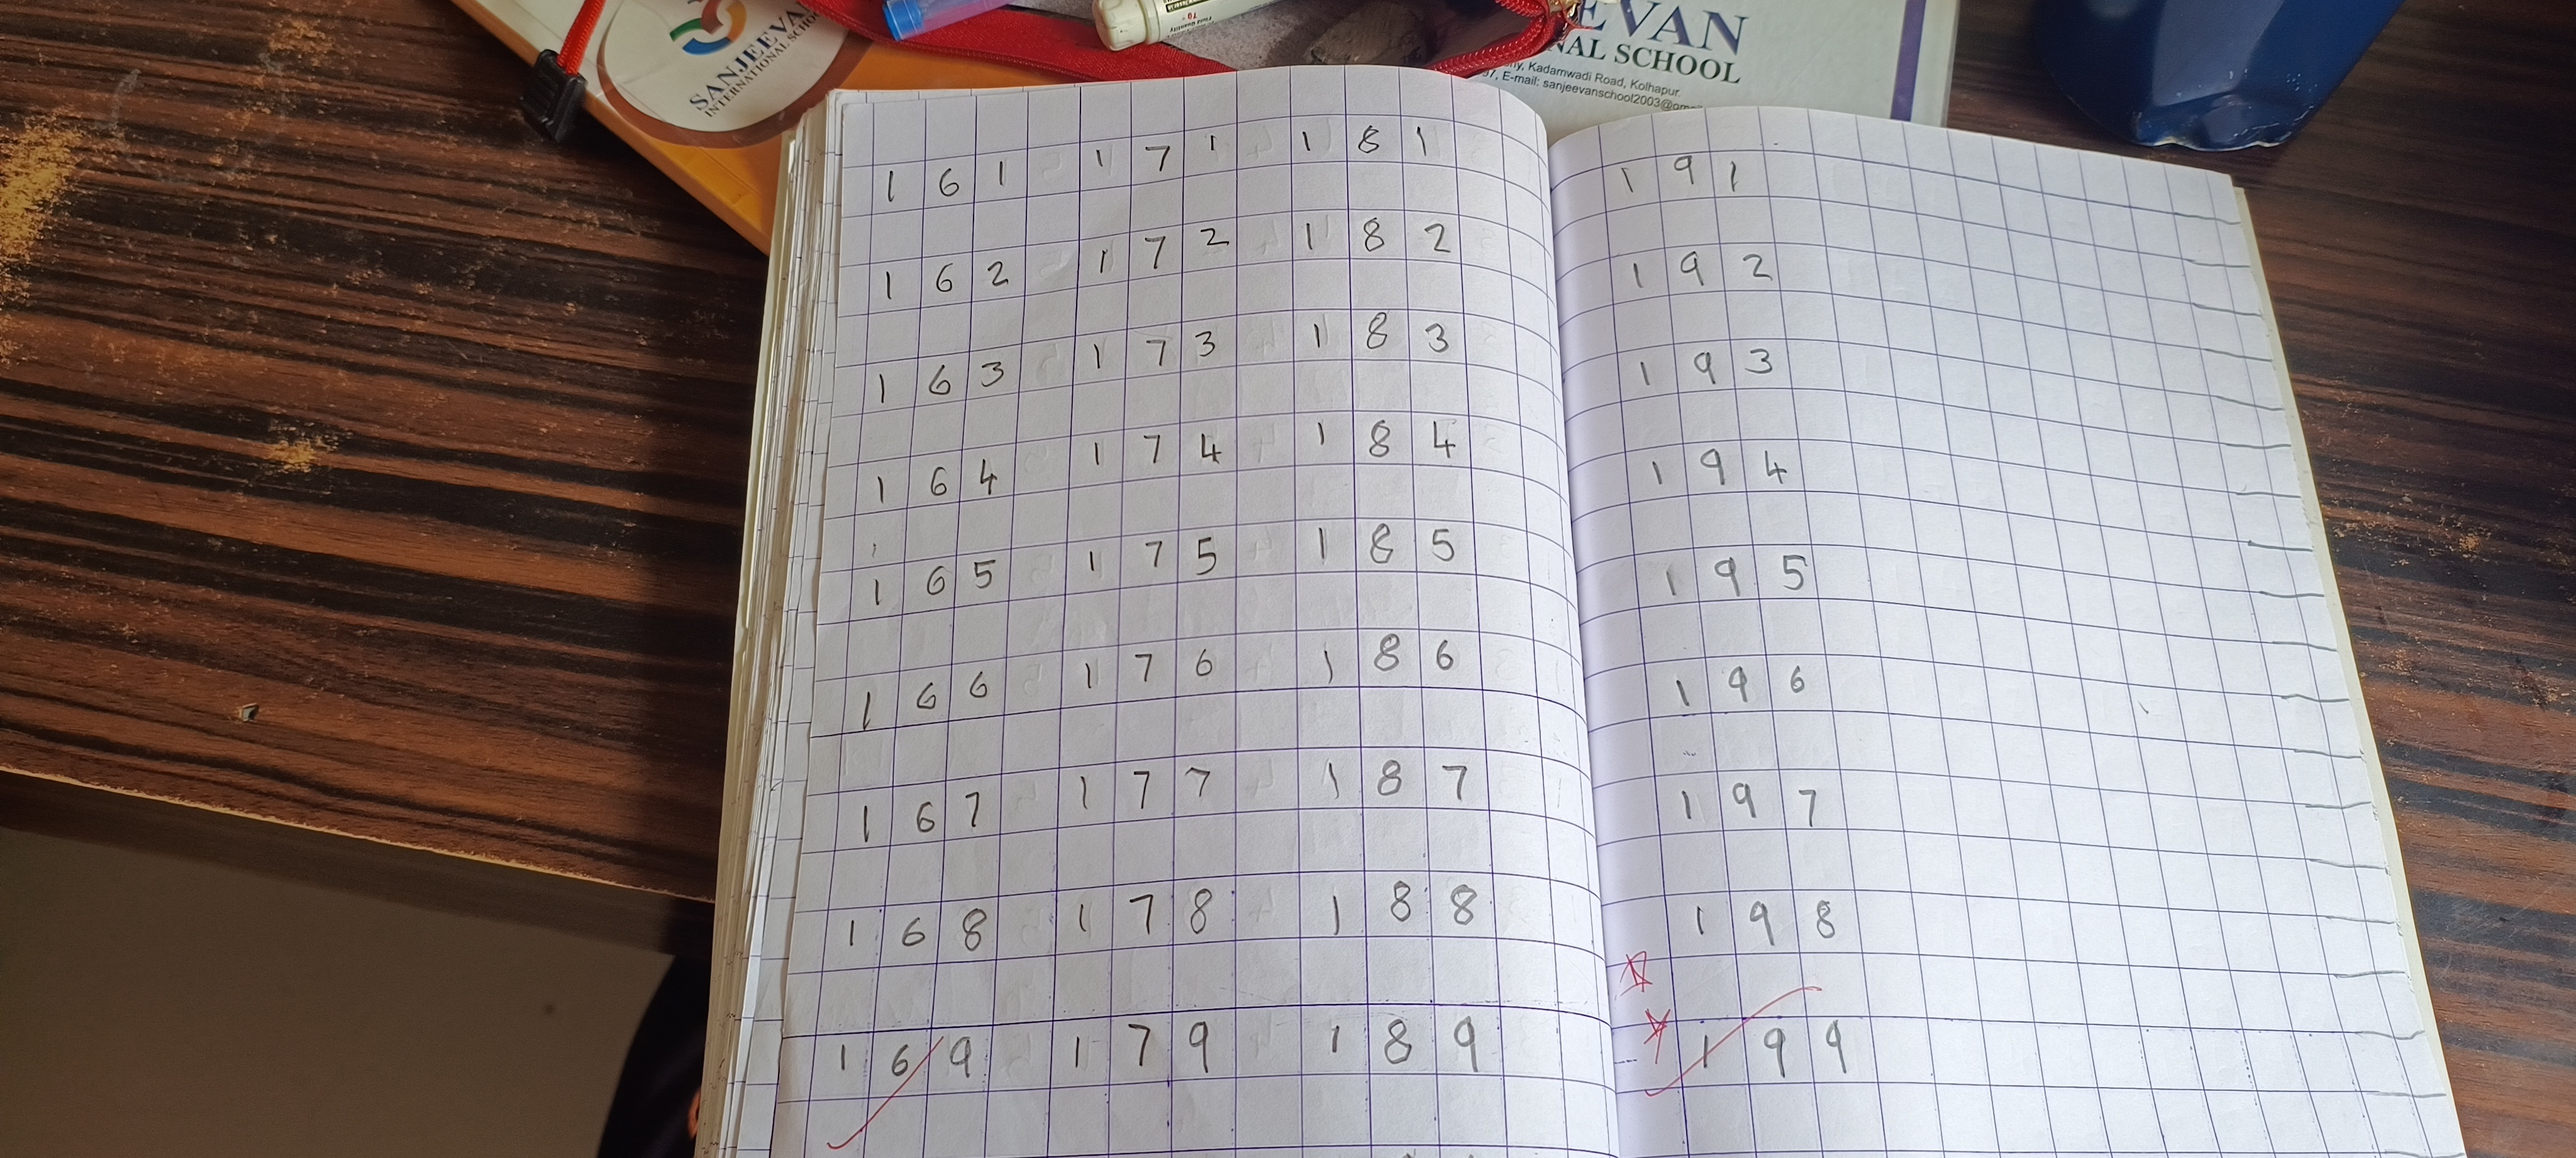 SANJEEVAN
INTERNATIONAL SCHOOL
EVAN
NAL SCHOOL
Kadamwadi Road, Kolhapur
E-mail: sanjeevanschool2003@
161 171 181
162 172 182
163 173 183
164 174 184
165 175 185
166 176 186
167 177 177 187
168 178 188
169 179 189
191
192
193
194
195
196
197
198
199